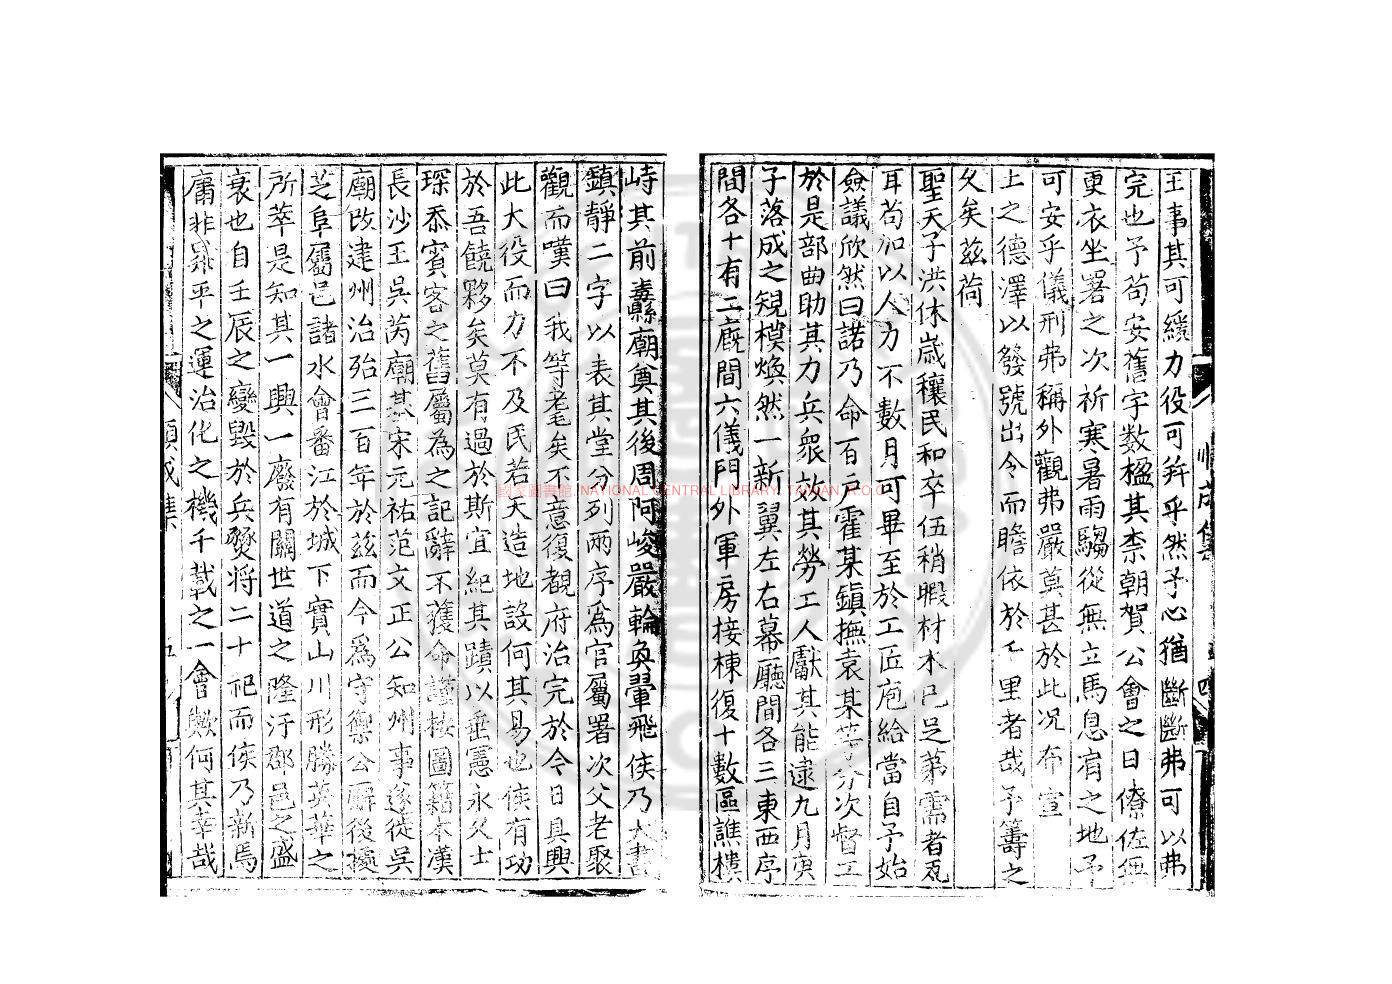 王事其可緩力役可并乎然予心猶斷斷弗可以弗
完也予苟安舊宇数楹其柰朝賀公會之日僚佐無
更衣坐署之次祈寒暑雨騶從無立馬息肩之地予
可安乎儀刑弗稱外觀弗嚴莫甚於此况布宣
上之德澤以發號出令而瞻依於千里者哉予籌之
久矣兹荷
聖天子洪休歲穰民和卒伍稍暇材木已足第需者瓦
耳苟加以人力不數月可畢至於工匠庖給當自予始
僉議欣然曰諾乃命百戶霍某鎮撫袁某等分次督工
於是部曲助其力兵衆效其勞工人獻其能逮九月庚
子落成之規模煥然一新翼左右幕廳間各三東西序
間各十有二廐間六儀門外軍房接棟復十數區譙樓
峙其前纛廟奠其後周阿峻嚴輪奐翬飛侯乃大書
鎮靜二字以表其堂分列兩序爲官屬署次父老聚
觀而嘆曰我等耄矣不意復覩府治完於今日具興
此大役而力不及民若天造地設何其易也侯有功
於吾饒夥矣莫有過於斯宜紀其蹟以垂憲永久士
琛忝賓客之舊屬為之記辭不獲命謹按圖籍本漢
長沙王吳芮廟基宋元祐范文正公知州事遂徙吳
廟改建州治殆三百年於茲而今爲守禦公廨後擁
芝阜屬邑諸水會番江於城下實山川形勝英華之
所萃是知其一興一廢有關世道之隆汙郡邑之盛
衰也自壬辰之變毀於兵燹將二十祀而侯乃新焉
庸非昇平之運治化之機千載之一會歟何其幸哉
國家圖書館 NATIONAL CENTRAL LIBRARY, TAIWAN, R.O.C.